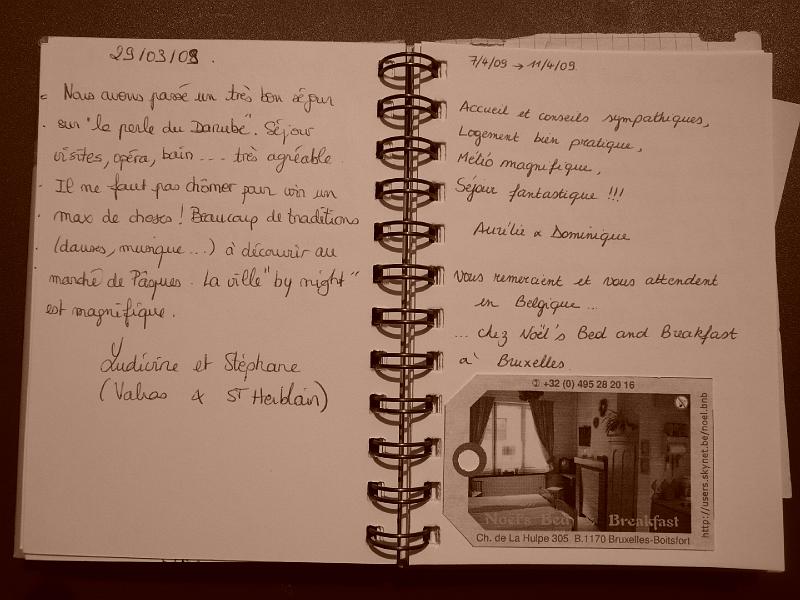 29/03/09.
Nous avons passé un très bon séjour
sur "la perle du Danube". Séjour
visites, opéra, bain ... très agréable
Il ne faut pas chômer pour voir un
max de choses ! Beaucoup de traditions
(danses, musique...) à découvrir au
marché de Pâques. La ville "by night"
est magnifique.
Ludivine et Stéphane
(Valras & ST Herblain)
7/4/09 → 11/4/09.
Accueil et conseils sympathiques,
Logement bien pratique,
Météo magnifique,
Séjour fantastique !!!
Aurélie & Dominique
Vous remercient et vous attendent
en Belgique ...
... chez Noël's Bed and Breakfast
à Bruxelles.
✆ +32 (0) 495 28 20 16
http://users.skynet.be/noel.bnb
Noël's Bed Breakfast
Ch. de La Hulpe 305 B.1170 Bruxelles-Boitsfort